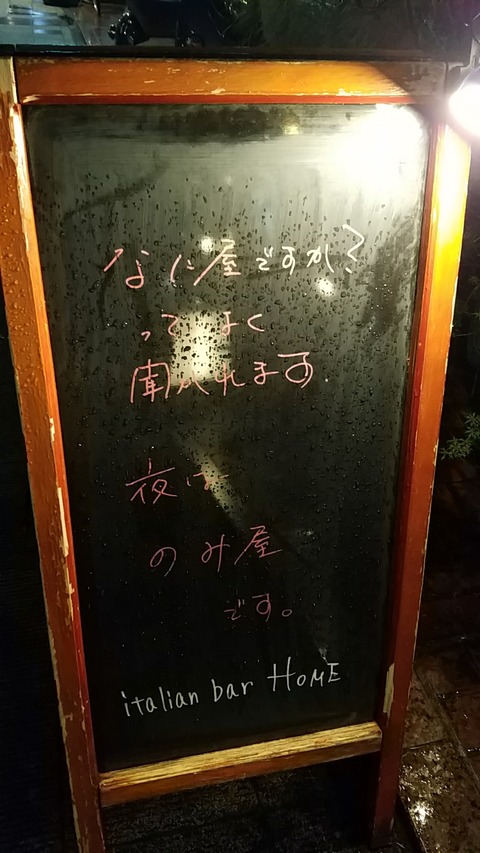 なに屋ですか?
ってよく
聞かれます.
夜は
のみ屋
です。
italian bar HOME